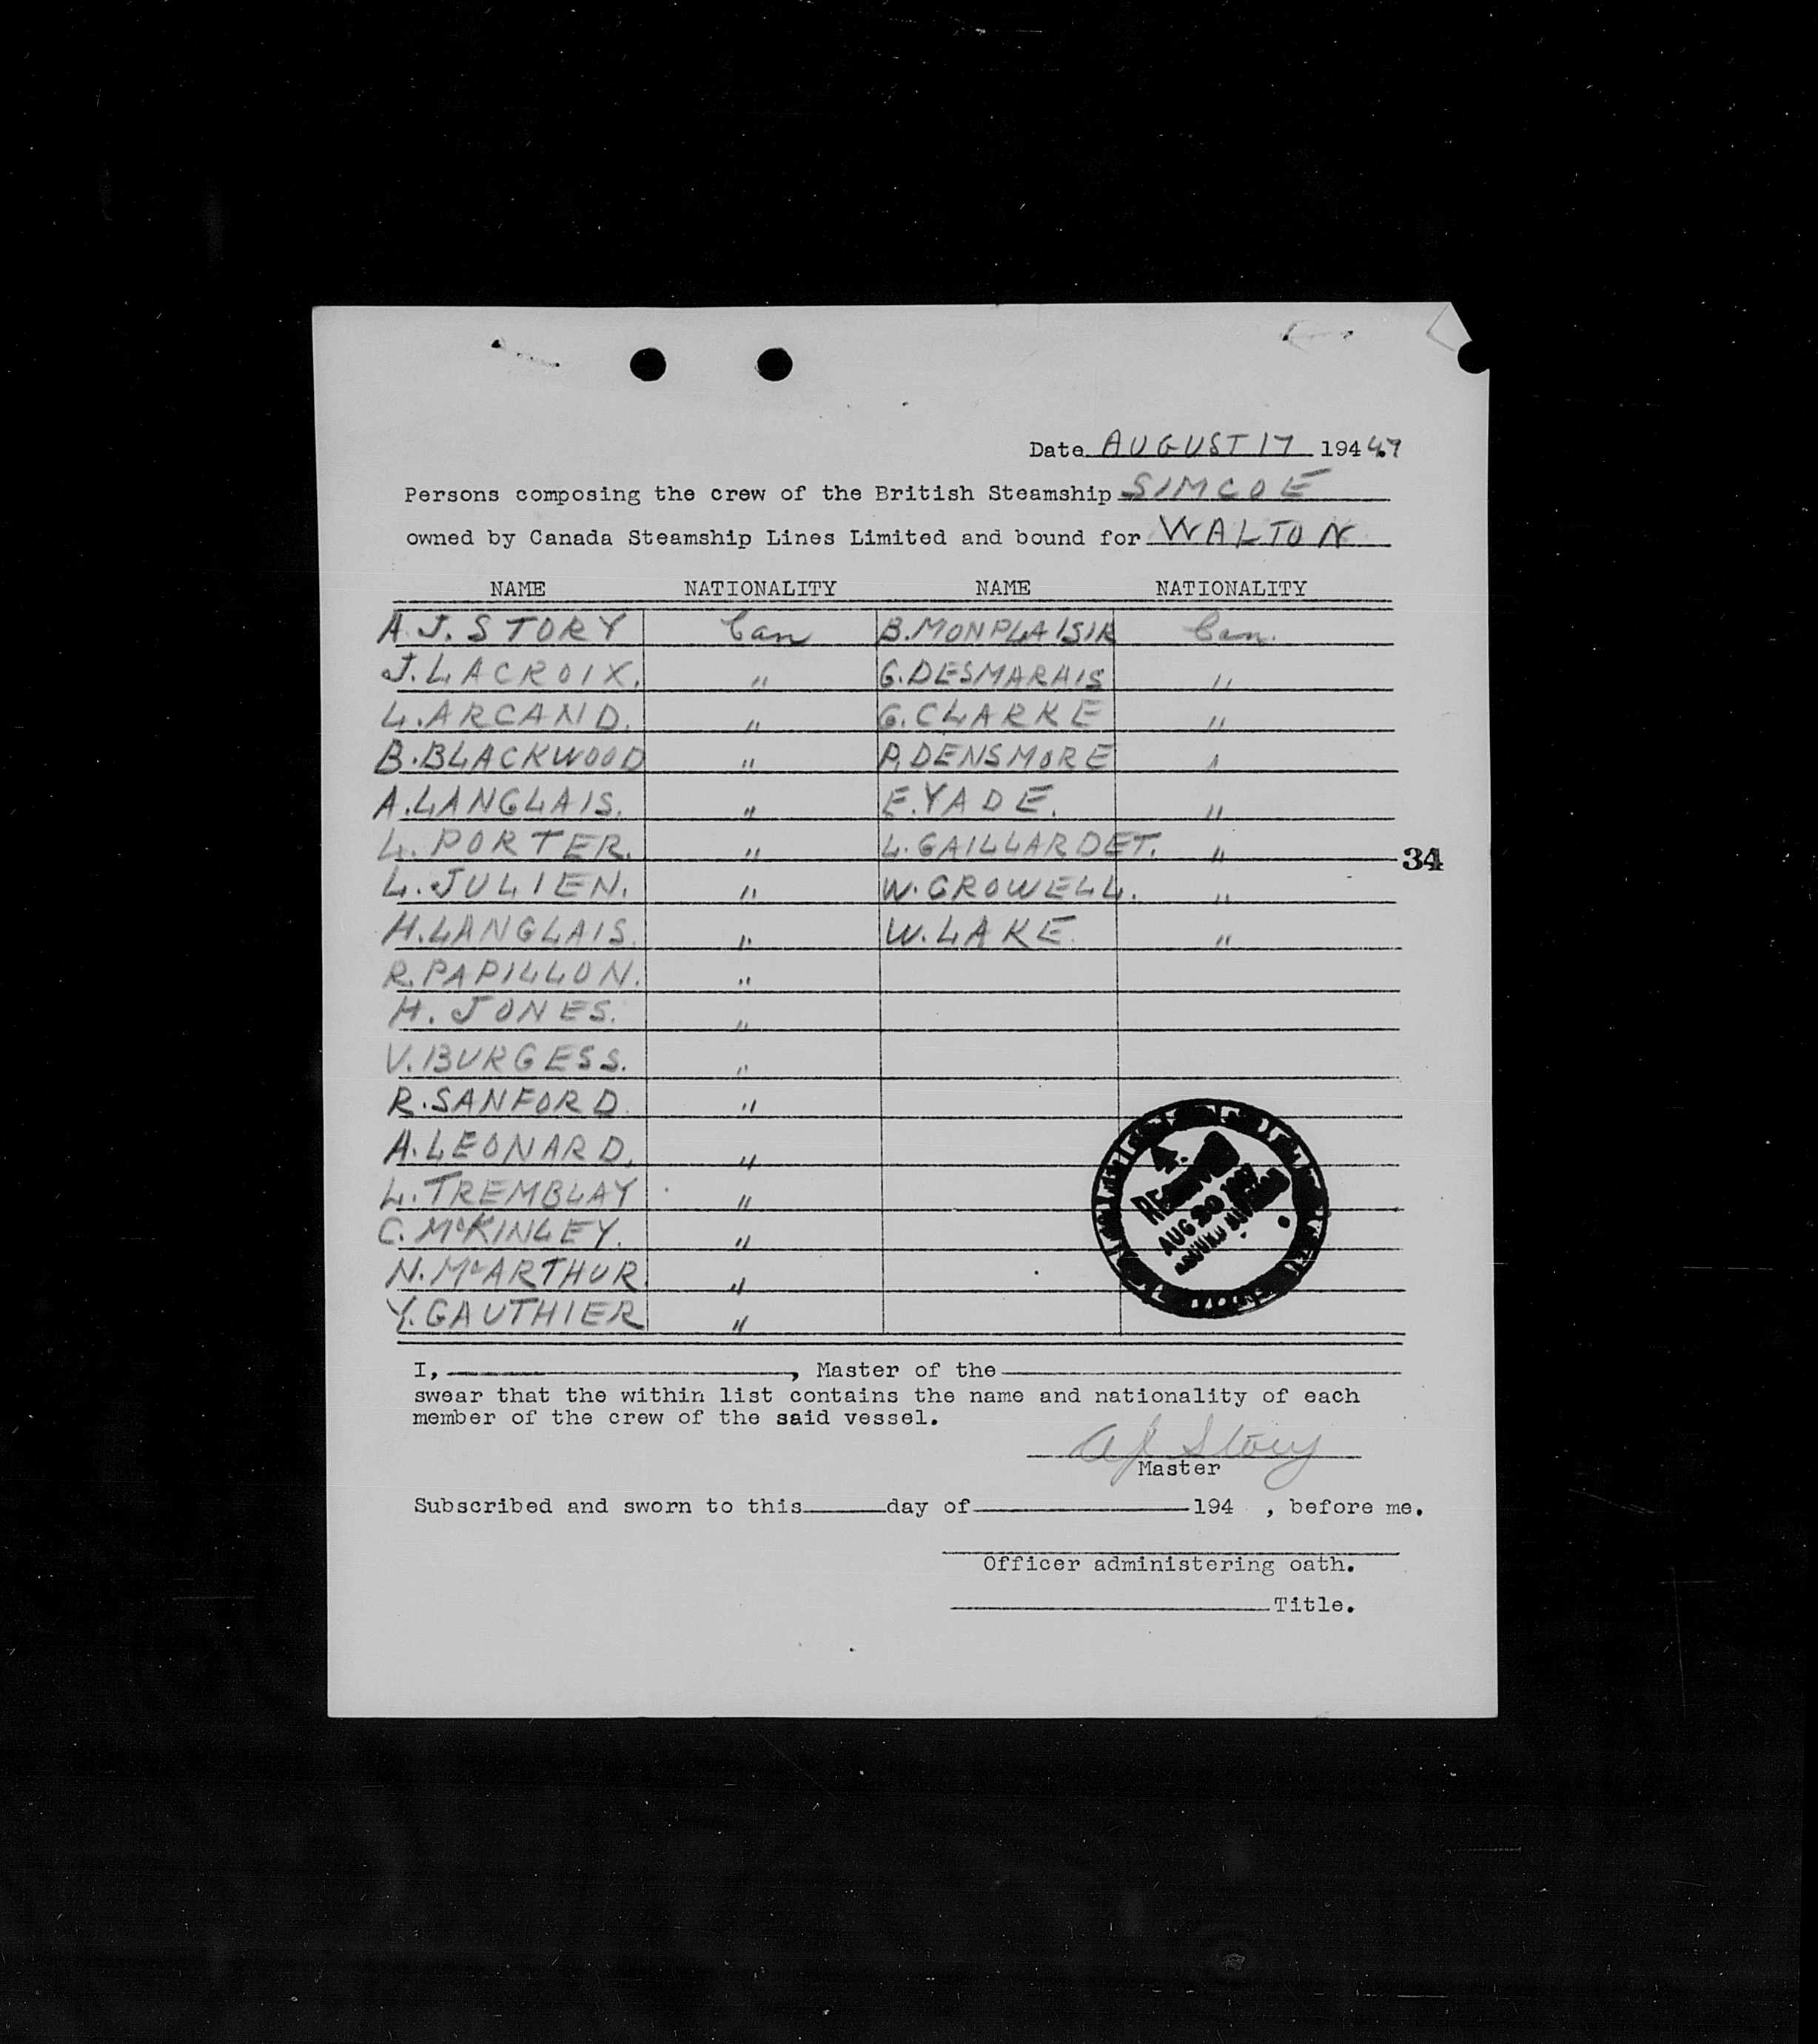 Date AUGUST 17 194 47
Persons composing the crew of the British Steamship SIMCOE
owned by Canada Steamship Lines Limited and bound for WALTON
NAME NATIONALITY NAME NATIONALITY
A. J. STORY Can B. MONPLAISIR Can.
J. LACROIX. " G. DESMARAIS "
L. ARCAND. " G. CLARKE "
B. BLACKWOOD " P. DENSMORE "
A. LANGLAIS. " E. YADE. "
L. PORTER. " L. GAILLARDET. "
34
L. JULIEN. " W. CROWELL. "
H. LANGLAIS. " W. LAKE. "
R. PAPILLON. "
H. JONES. "
V. BURGESS. "
R. SANFORD. "
A. LEONARD. "
L. TREMBLAY "
C. McKINLEY. "
N. McARTHUR. "
Y. GAUTHIER "
AUG 20
I, , Master of the
swear that the within list contains the name and nationality of each
member of the crew of the said vessel.
A J Story
Master
Subscribed and sworn to this day of 194 , before me.
Officer administering oath.
Title.